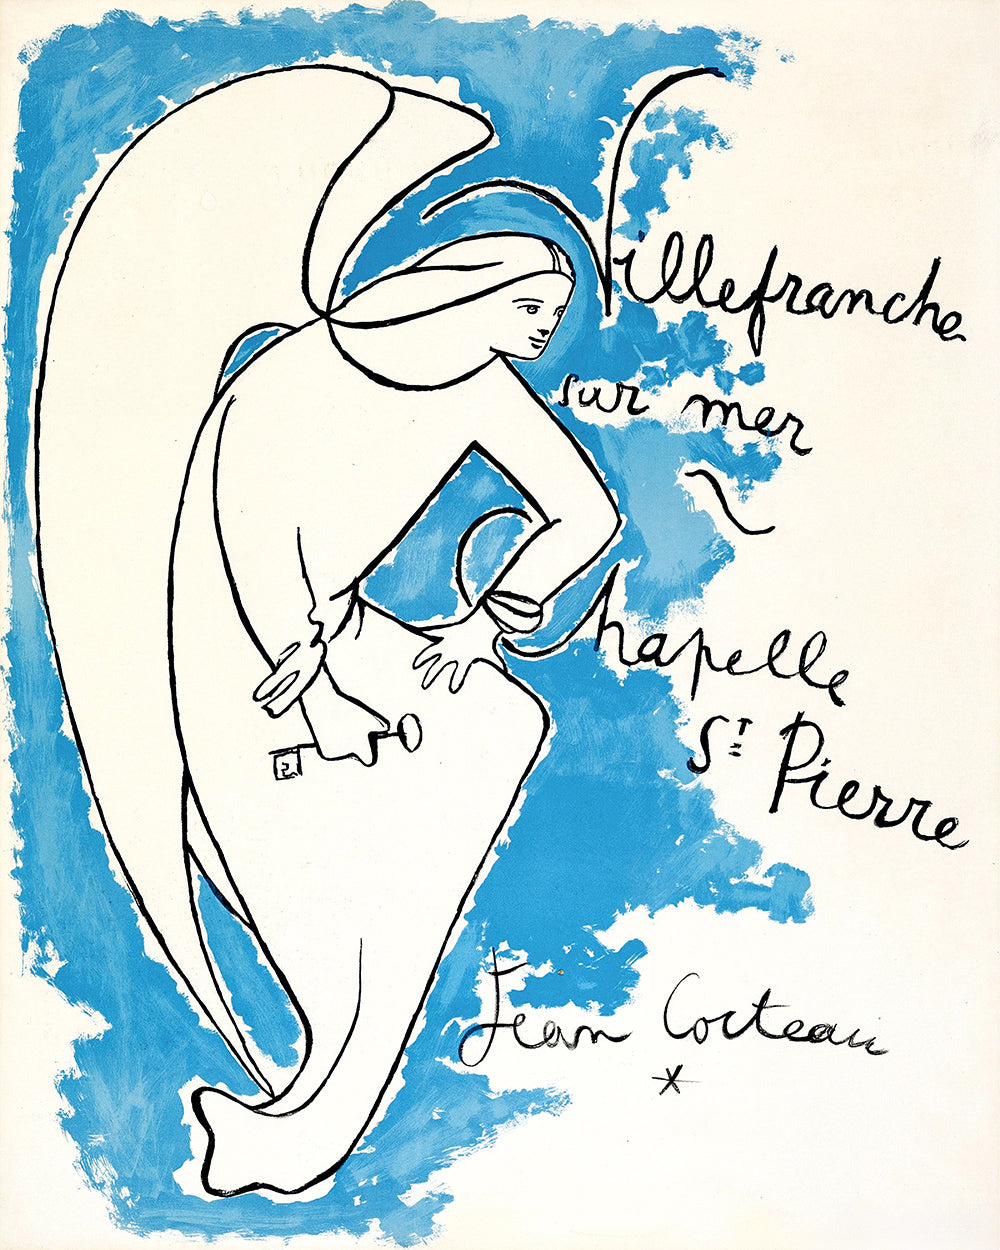 Villefranche
sur mer
~
Chapelle
St Pierre
Jean Cocteau
*